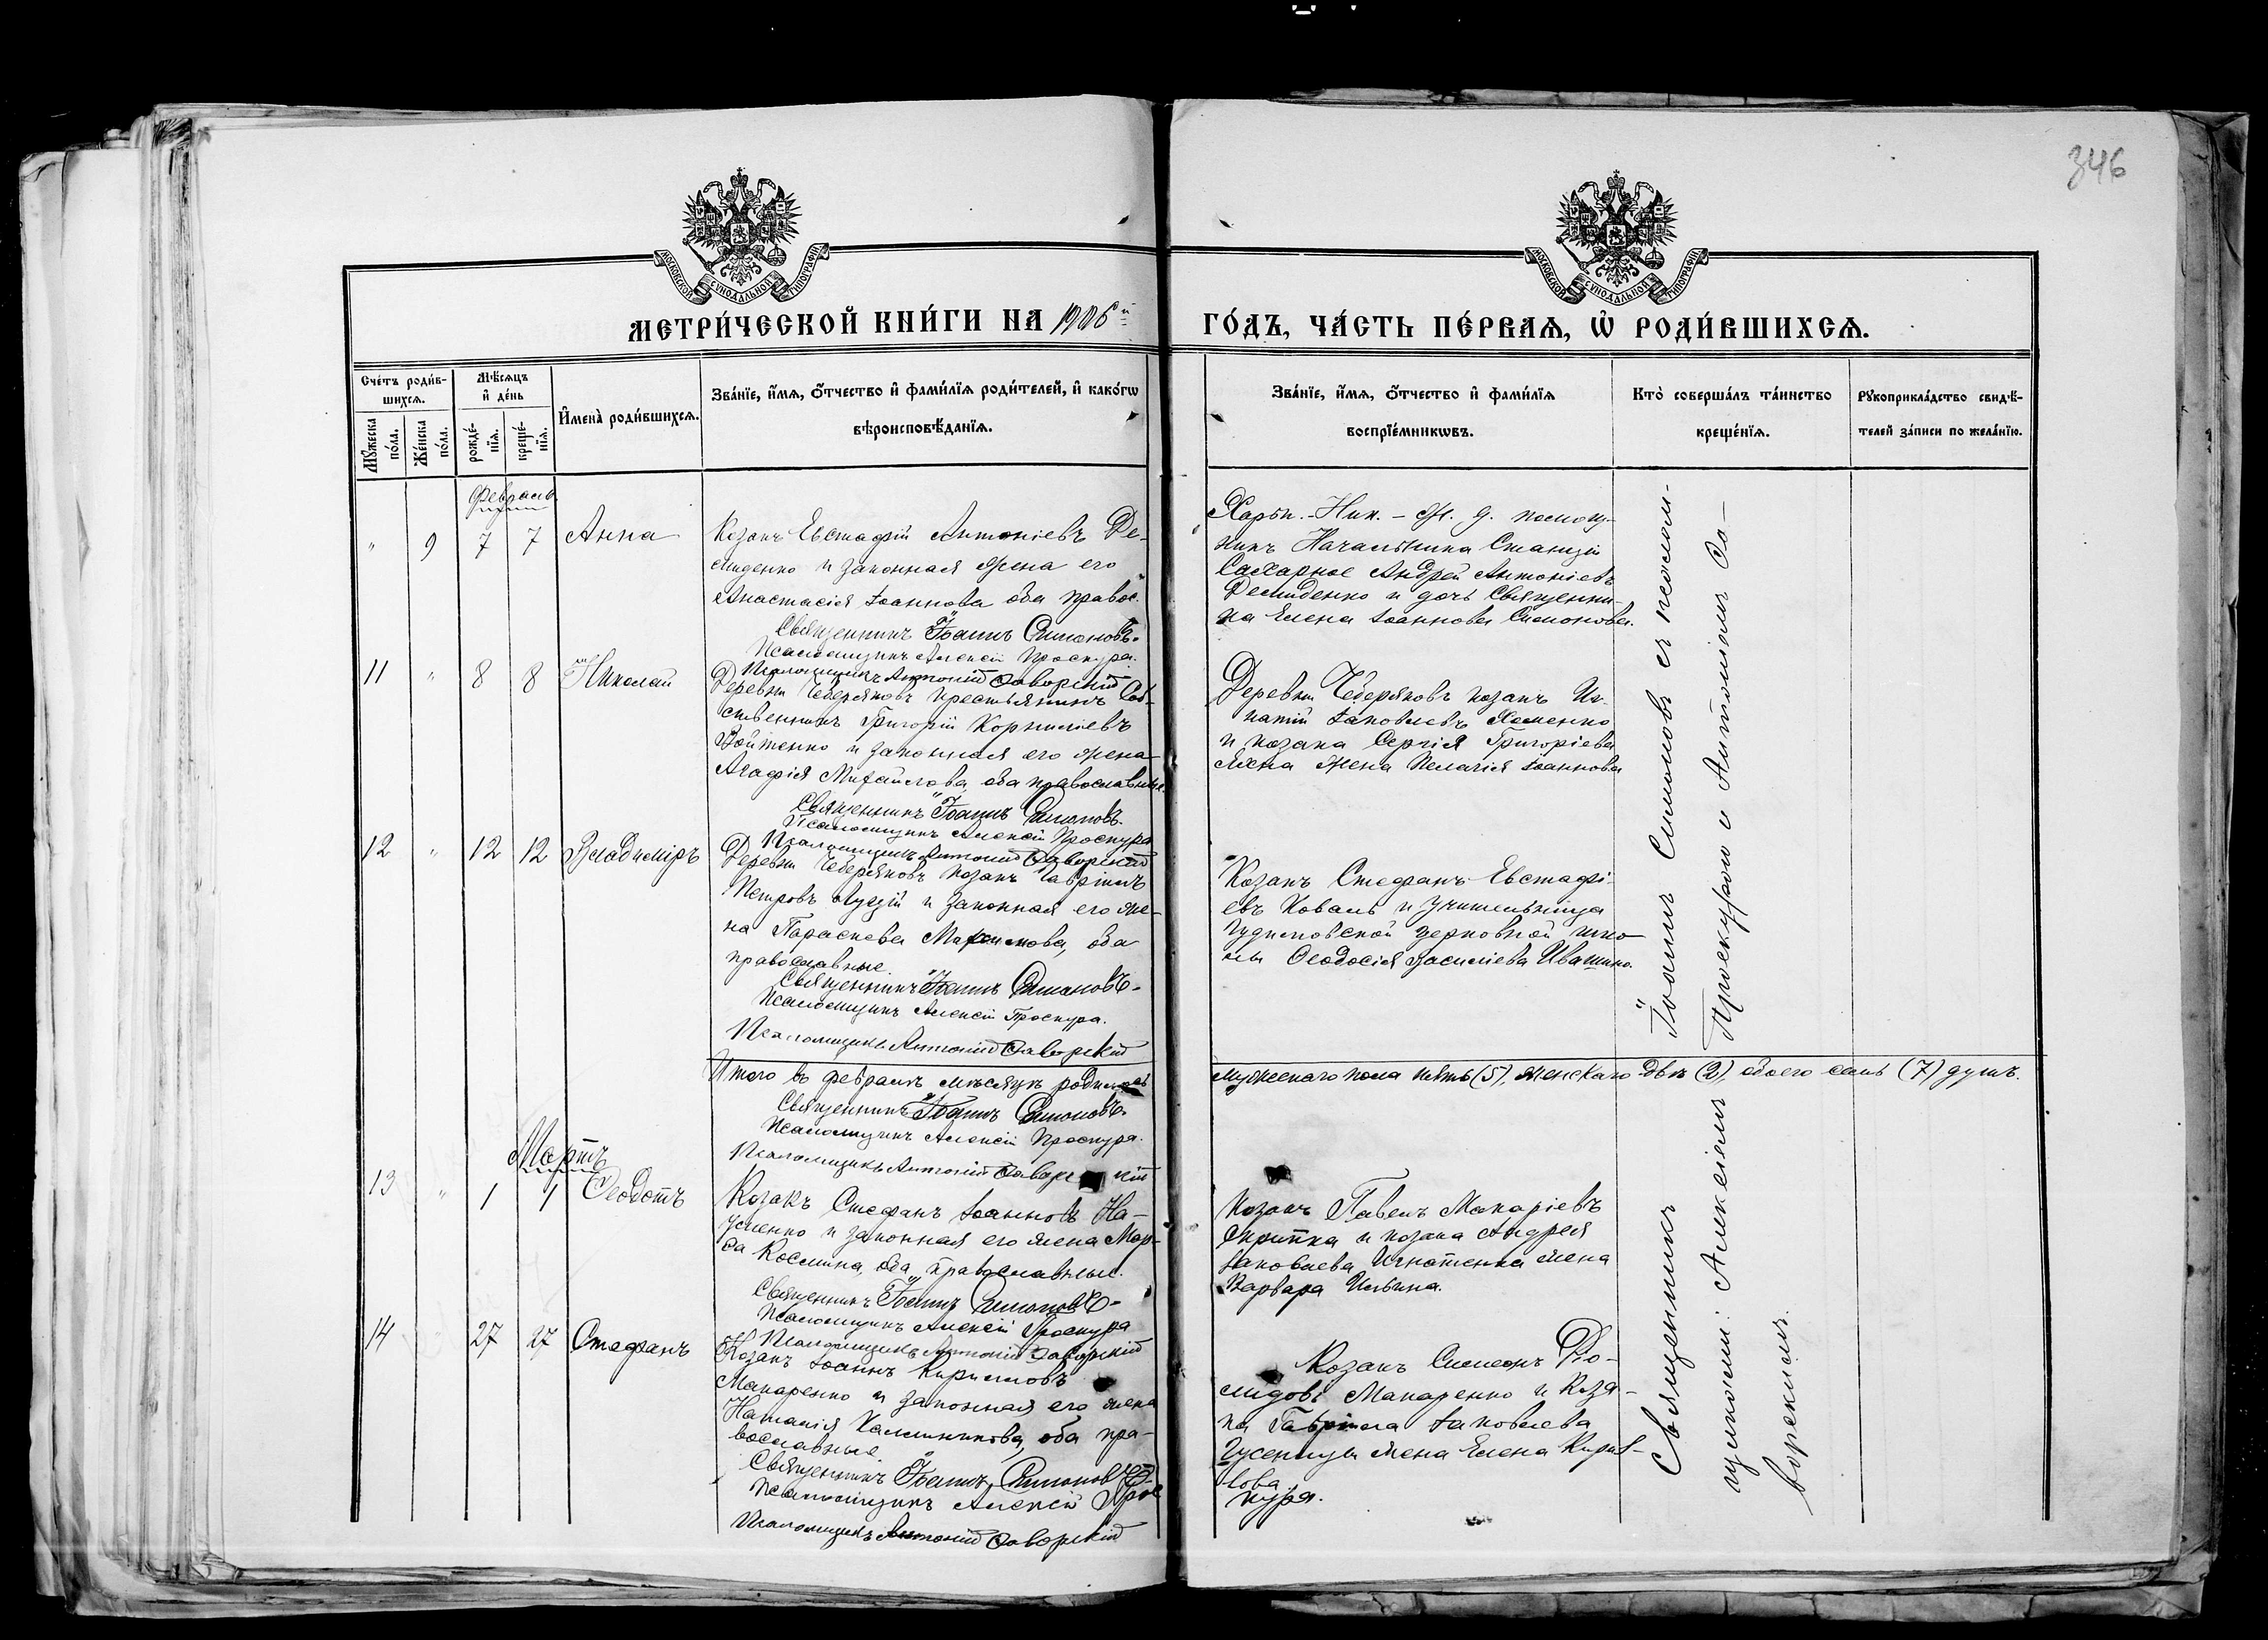 346
МОСКОВСКОЙ СѴНОДАЛЬНОЙ ТИПОГРАФІИ
МОСКОВСКОЙ СѴНОДАЛЬНОЙ ТИПОГРАФІИ
МЕТРИ́ЧЕСКОЙ КНИ́ГИ НА 1906й
ГО́ДЪ, ЧА́СТЬ ПЕ́РВАѦ, Ѡ҆ РОДИ́ВШИХСѦ.
Сче́тъ роди́в-
шихсѧ.
Мꙋ́жеска по́ла.
Же́нска по́ла.
Мѣ́сѧцъ
и҆ де́нь
рожде́-
нїѧ.
креще́-
нїѧ.
И҆мена̀ роди́вшихсѧ.
Зва́нїе, и҆́мѧ, ѻ҆́тчество и҆ фами́лїѧ роди́телей, и҆ како́гѡ
вѣроисповѣ́данїѧ.
Зва́нїе, и҆́мѧ, ѻ҆́тчество и҆ фами́лїѧ
воспрїе́мникѡвъ.
Кто̀ соверша́лъ та́инство
креще́нїѧ.
Рꙋкоприкла́дство свидѣ́-
телей за́писи по жела́нїю.
Февраль
" 9 7 7 Анна
Козакъ Евстафій Антоніевъ Де-
миденко и законная жена его
Анастасія Іоаннова оба правос.
Священникъ Іоаннъ Симоновъ.
Псаломщикъ Алексій Проскура.
Псаломщикъ Антоній Заворскій
Харьк.-Ник.-ж. д. помощ-
никъ Начальника Станціи
Сахарное Андрей Антоніевъ
Демиденко и дочь Священни-
ка Елена Іоаннова Симонова.
11 " 8 8 Николай
Деревни Чеберяковъ крестьянинъ Соб-
ственникъ Григорій Корниліевъ
Войтенко и законная его жена
Агафія Михайлова, оба православные.
Священникъ Іоаннъ Симоновъ.
Псаломщикъ Алексій Проскура
Псаломщикъ Антоній Заворскій
Деревни Чеберяковъ козакъ Иг-
натій Іаковлевъ Хоменко
и козака Сергія Григоріева
жена Пелагія Іоаннова
12 " 12 12 Владиміръ
Деревни Чеберяковъ козакъ Гавріилъ
Петровъ и законная его же-
на Параскева Максимова, оба
православные.
Священникъ Іоаннъ Симоновъ.
Псаломщикъ Алексій Проскура.
Псаломщикъ Антоній Заворскій
Козакъ Стефанъ Евстафі-
евъ Коваль и Учительница
церковной шко-
лы Ѳеодосія Василіева
Итого въ февралѣ мѣсяцѣ родилось
мужескаго пола пять (5), женскаго двѣ (2), обоего семь (7) душъ.
Священникъ Іоаннъ Симоновъ.
Псаломщикъ Алексій Проскура.
Псаломщикъ Антоній Заворскій
Мартъ
13 " 1 1 Ѳеодотъ
Козакъ Стефанъ Іоанновъ На-
уменко и законная его жена Мар-
ѳа Космина, оба православные.
Священникъ Іоаннъ Симоновъ
Псаломщикъ Алексій Проскура
Псаломщикъ Антоній Заворскій
Козакъ Павелъ Макаріевъ
Скрипка и козака Андрея
Іаковлева Игнатенка жена
Варвара Ильина.
14 27 27 Стефанъ
Козакъ Іоаннъ Кирилловъ
Макаренко и законная его жена
Наталія Каллиникова, оба пра-
вославные.
Священникъ Іоаннъ Симоновъ
Псаломщикъ Алексій Прос
кура.
Псаломщикъ Антоній Заворскій
Козакъ Симеонъ Дio-
мидовъ Макаренко и коза-
ка Гавріила Іаковлева
Гусеницы жена Елена Кирил-
лова
Священникъ Іоаннъ Симоновъ съ псалом-
щиками: Алексіемъ Проскурою и Антоніемъ За-
ворскимъ.